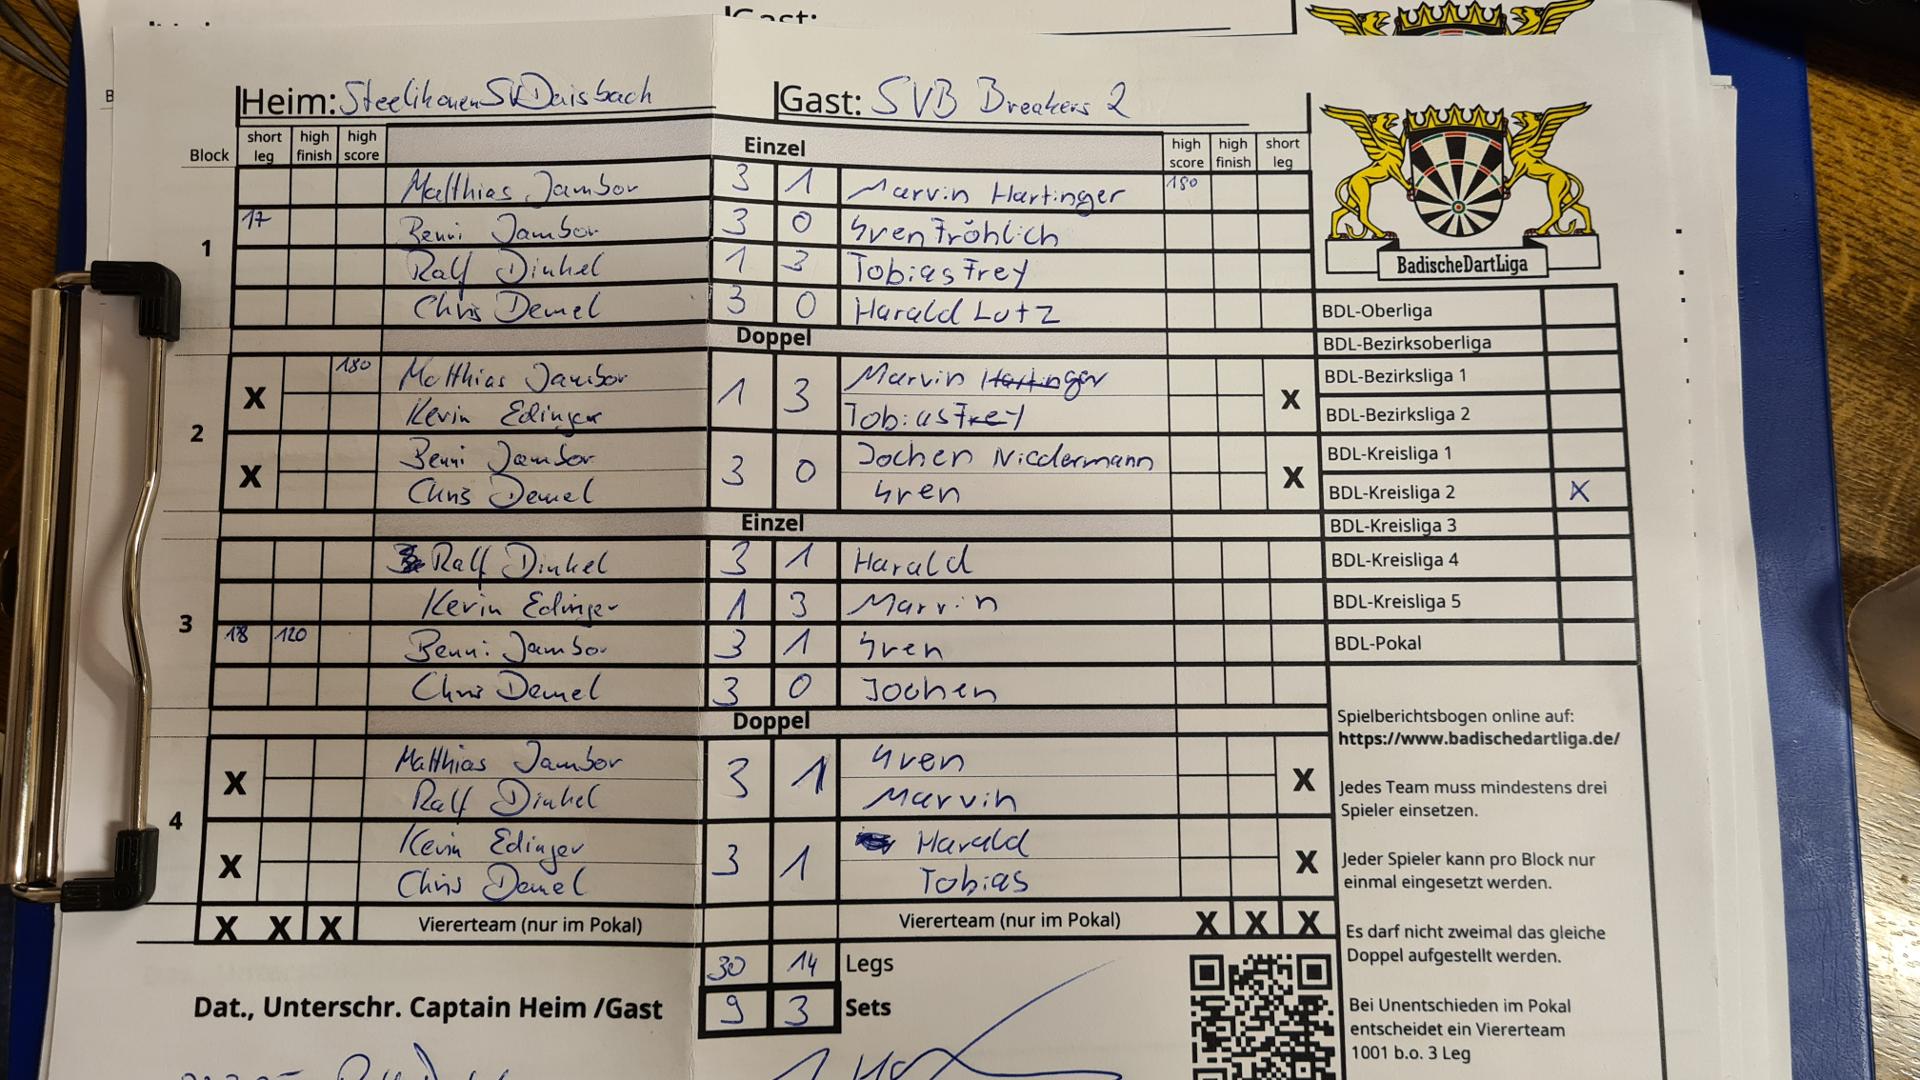 Gast:
Heim: Steelihauen SV Daisbach Gast: SVB Breakers 2
Block short leg high finish high score Einzel high score high finish short leg
1
Matthias Jambor 3 1 Marvin Hartinger 180
17 Benni Jambor 3 0 Sven Fröhlich
Ralf Dinkel 1 3 Tobias Frey
Chris Demel 3 0 Harald Lutz
Doppel
2
X 180 Matthias Jambor 1 3 Marvin Hartinger X
Kevin Edinger Tobias Frey
X Benni Jambor 3 0 Jochen Niedermann X
Chris Demel Sven
Einzel
3
Ralf Dinkel 3 1 Harald
Kevin Edinger 1 3 Marvin
18 120 Benni Jambor 3 1 Sven
Chris Demel 3 0 Jochen
Doppel
4
X Matthias Jambor 3 1 Sven X
Ralf Dinkel Marvin
X Kevin Edinger 3 1 Harald X
Chris Demel Tobias
X X X Vierteam (nur im Pokal) Viererteam (nur im Pokal) X X X
30 14 Legs
9 3 Sets
Dat., Unterschr. Captain Heim /Gast
BadischeDartLiga
BDL-Oberliga
BDL-Bezirksoberliga
BDL-Bezirksliga 1
BDL-Bezirksliga 2
BDL-Kreisliga 1
BDL-Kreisliga 2 X
BDL-Kreisliga 3
BDL-Kreisliga 4
BDL-Kreisliga 5
BDL-Pokal
Spielberichtsbogen online auf:
https://www.badischedartliga.de/
Jedes Team muss mindestens drei
Spieler einsetzen.
Jeder Spieler kann pro Block nur
einmal eingesetzt werden.
Es darf nicht zweimal das gleiche
Doppel aufgestellt werden.
Bei Unentschieden im Pokal
entscheidet ein Viererteam
1001 b.o. 3 Leg